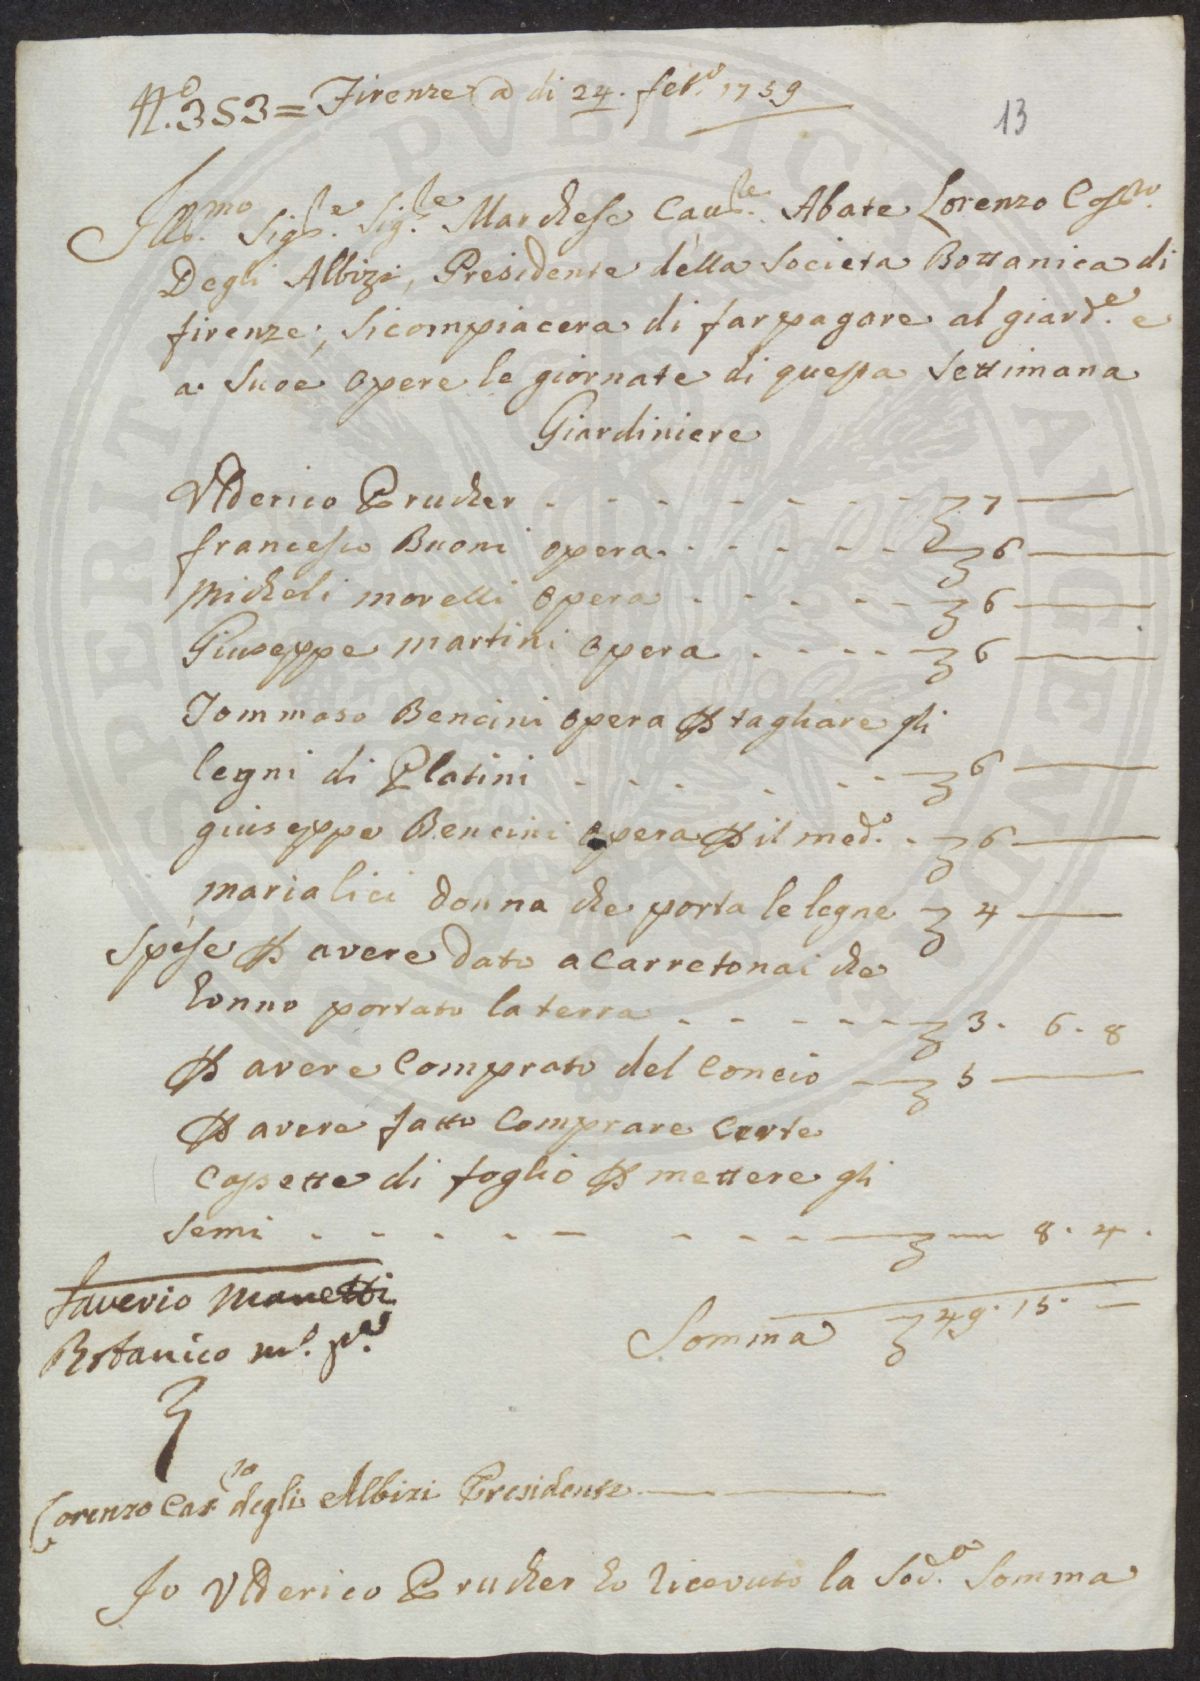 N.o 353 = Firenze a di 24. feb.o 1759
13
Ill.mo Sig.re Sig.re Marchese Cau.re Abate Lorenzo
Degli Albizi, Presidente della Societa Bottanica di
firenze; Si compiacera di far pagare al giard.e e
a Suoe opere le giornate di questa Settimana
Giardiniere
Vlderico Prucher . . . . . . . ʒ 7 —
francesco Buoni opera . . . . . . ʒ 6 —
Micheli morelli opera . . . . . ʒ 6 —
Giuseppe martini opera . . . . ʒ 6 —
Tommaso Bencini opera ₱ tagliare gli
legni di Platini . . . . . . ʒ 6 —
giuseppe Bencini opera ₱ il med.o . ʒ 6 —
maria lici donna che porta le legne ʒ 4 —
Spese ₱ avere dato a Carretonai che
honno portato la terra . . . . . ʒ 3. 6. 8
₱ avere Comprato del Concio — ʒ 5 —
₱ avere fatto Comprare Certe
Capsette di foglio ₱ mettere gli
Semi . . . . . . . . ʒ — 8. 4.
Saverio Manetti
Botanico m.o p.a
Somma ʒ 49. 15. —
Lorenzo degli Albizi Presidente
Io Vlderico Prucher ho ricevuto la Sod.a Somma
PVBLICAE